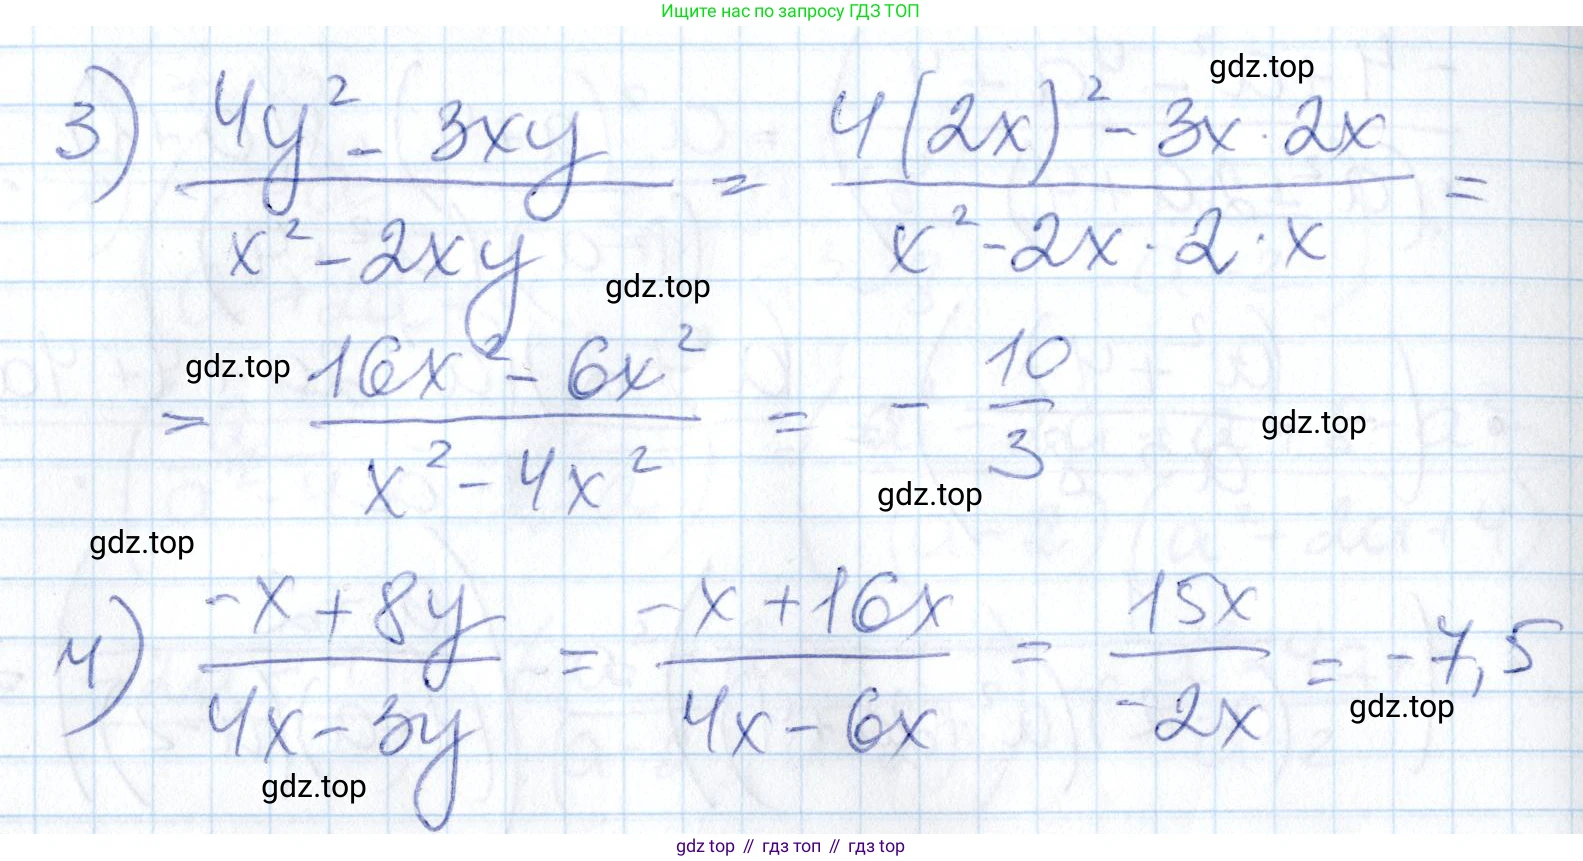 Ищите нас по запросу ГДЗ ТОП
gdz.top
3) (4y² - 3xy)/(x² - 2xy) = (4(2x)² - 3x · 2x)/(x² - 2x · 2 · x) =
gdz.top
gdz.top
= (16x² - 6x²)/(x² - 4x²) = - 10/3
gdz.top
gdz.top
gdz.top
4) (-x + 8y)/(4x - 3y) = (-x + 16x)/(4x - 6x) = 15x/(-2x) = -7,5
gdz.top
gdz.top
gdz top // гдз топ // гдз top